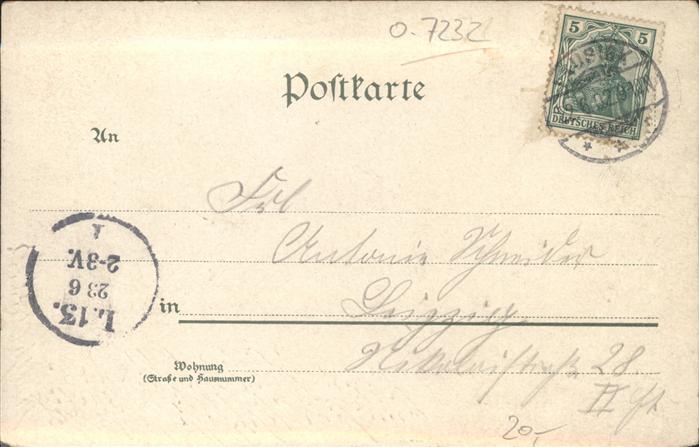 o-7232
5 5
DEUTSCHES REICH
Postkarte
An
Frl
Antonie Schneider
in Leipzig
Wohnung Nikolaistraße 28
(Straße und Hausnummer)
II
L.13.
23 6
2-3V.
20,-